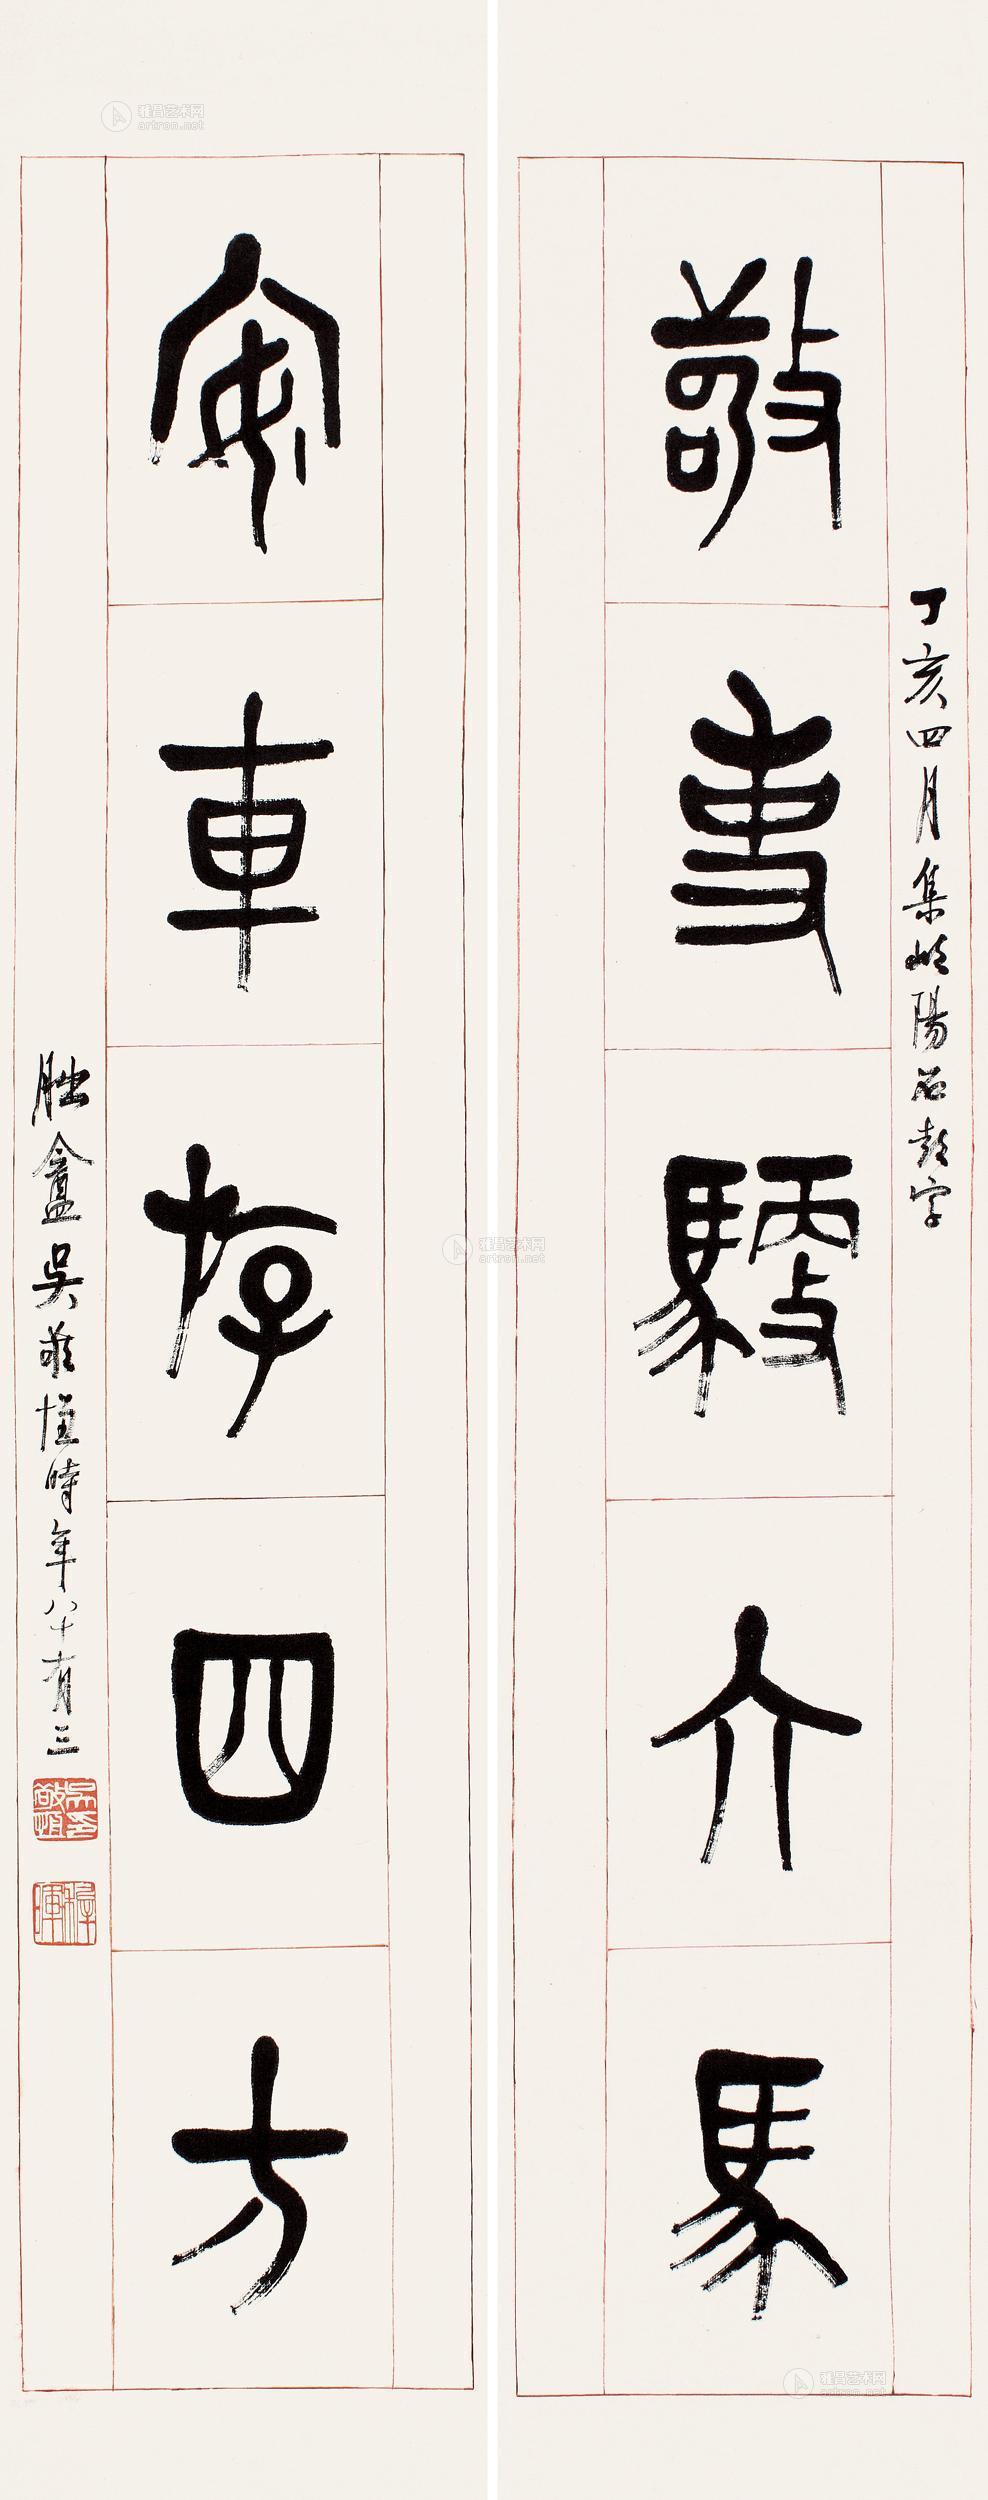 丁亥四月集岐陽石鼓字
敬事馭介馬
安車存四方
朏盦吳敬恆時年八十有三
吳印敬恆
稚暉
雅昌艺术网
artron.net
雅昌艺术网
artron.net
雅昌艺术网
artron.net